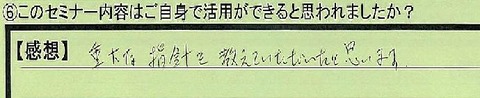 ⑥このセミナー内容はご自身で活用ができると思われましたか？
【感想】重大な指針を教えていただいたと思います。